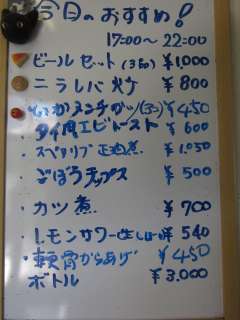 今日のおすすめ!
17:00〜22:00
ビールセット(3品) ¥1,000
ニラレバ炒 ¥800
メンチカツ ¥450
・タイ風エビトースト ¥600
・スペアリブ 煮 ¥1,050
・ごぼうチップス ¥500
・カツ煮 ¥700
・レモンサワー ¥540
・軟骨からあげ ¥450
ボトル ¥3,000